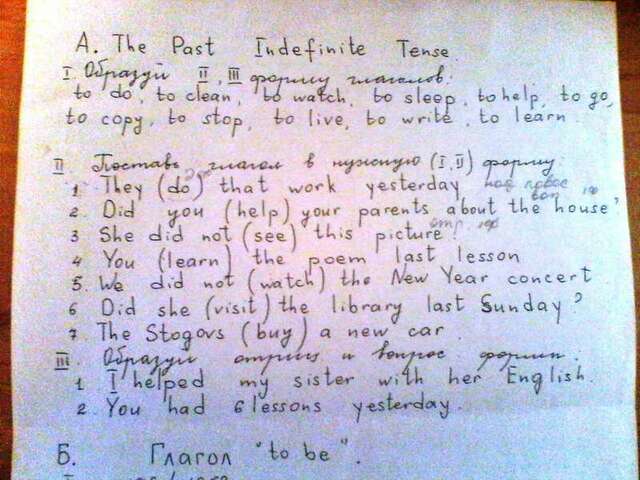 A. The Past Indefinite Tense
I. Образуй II, III форму глаголов:
to do, to clean, to watch, to sleep, to help, to go,
to copy, to stop, to live, to write, to learn.
II Поставь глагол в нужную (I, II) форму:
1 They (do) that work yesterday
2. Did you (help) your parents about the house?
3 She did not (see) this picture!
4 You (learn) the poem last lesson
5. We did not (watch) the New Year concert
6 Did she (visit) the library last Sunday?
7 The Stogovs (buy) a new car
III. Образуй отриц и вопрос формы:
1 I helped my sister with her English.
2. You had 6 lessons yesterday.
Б. Глагол "to be".